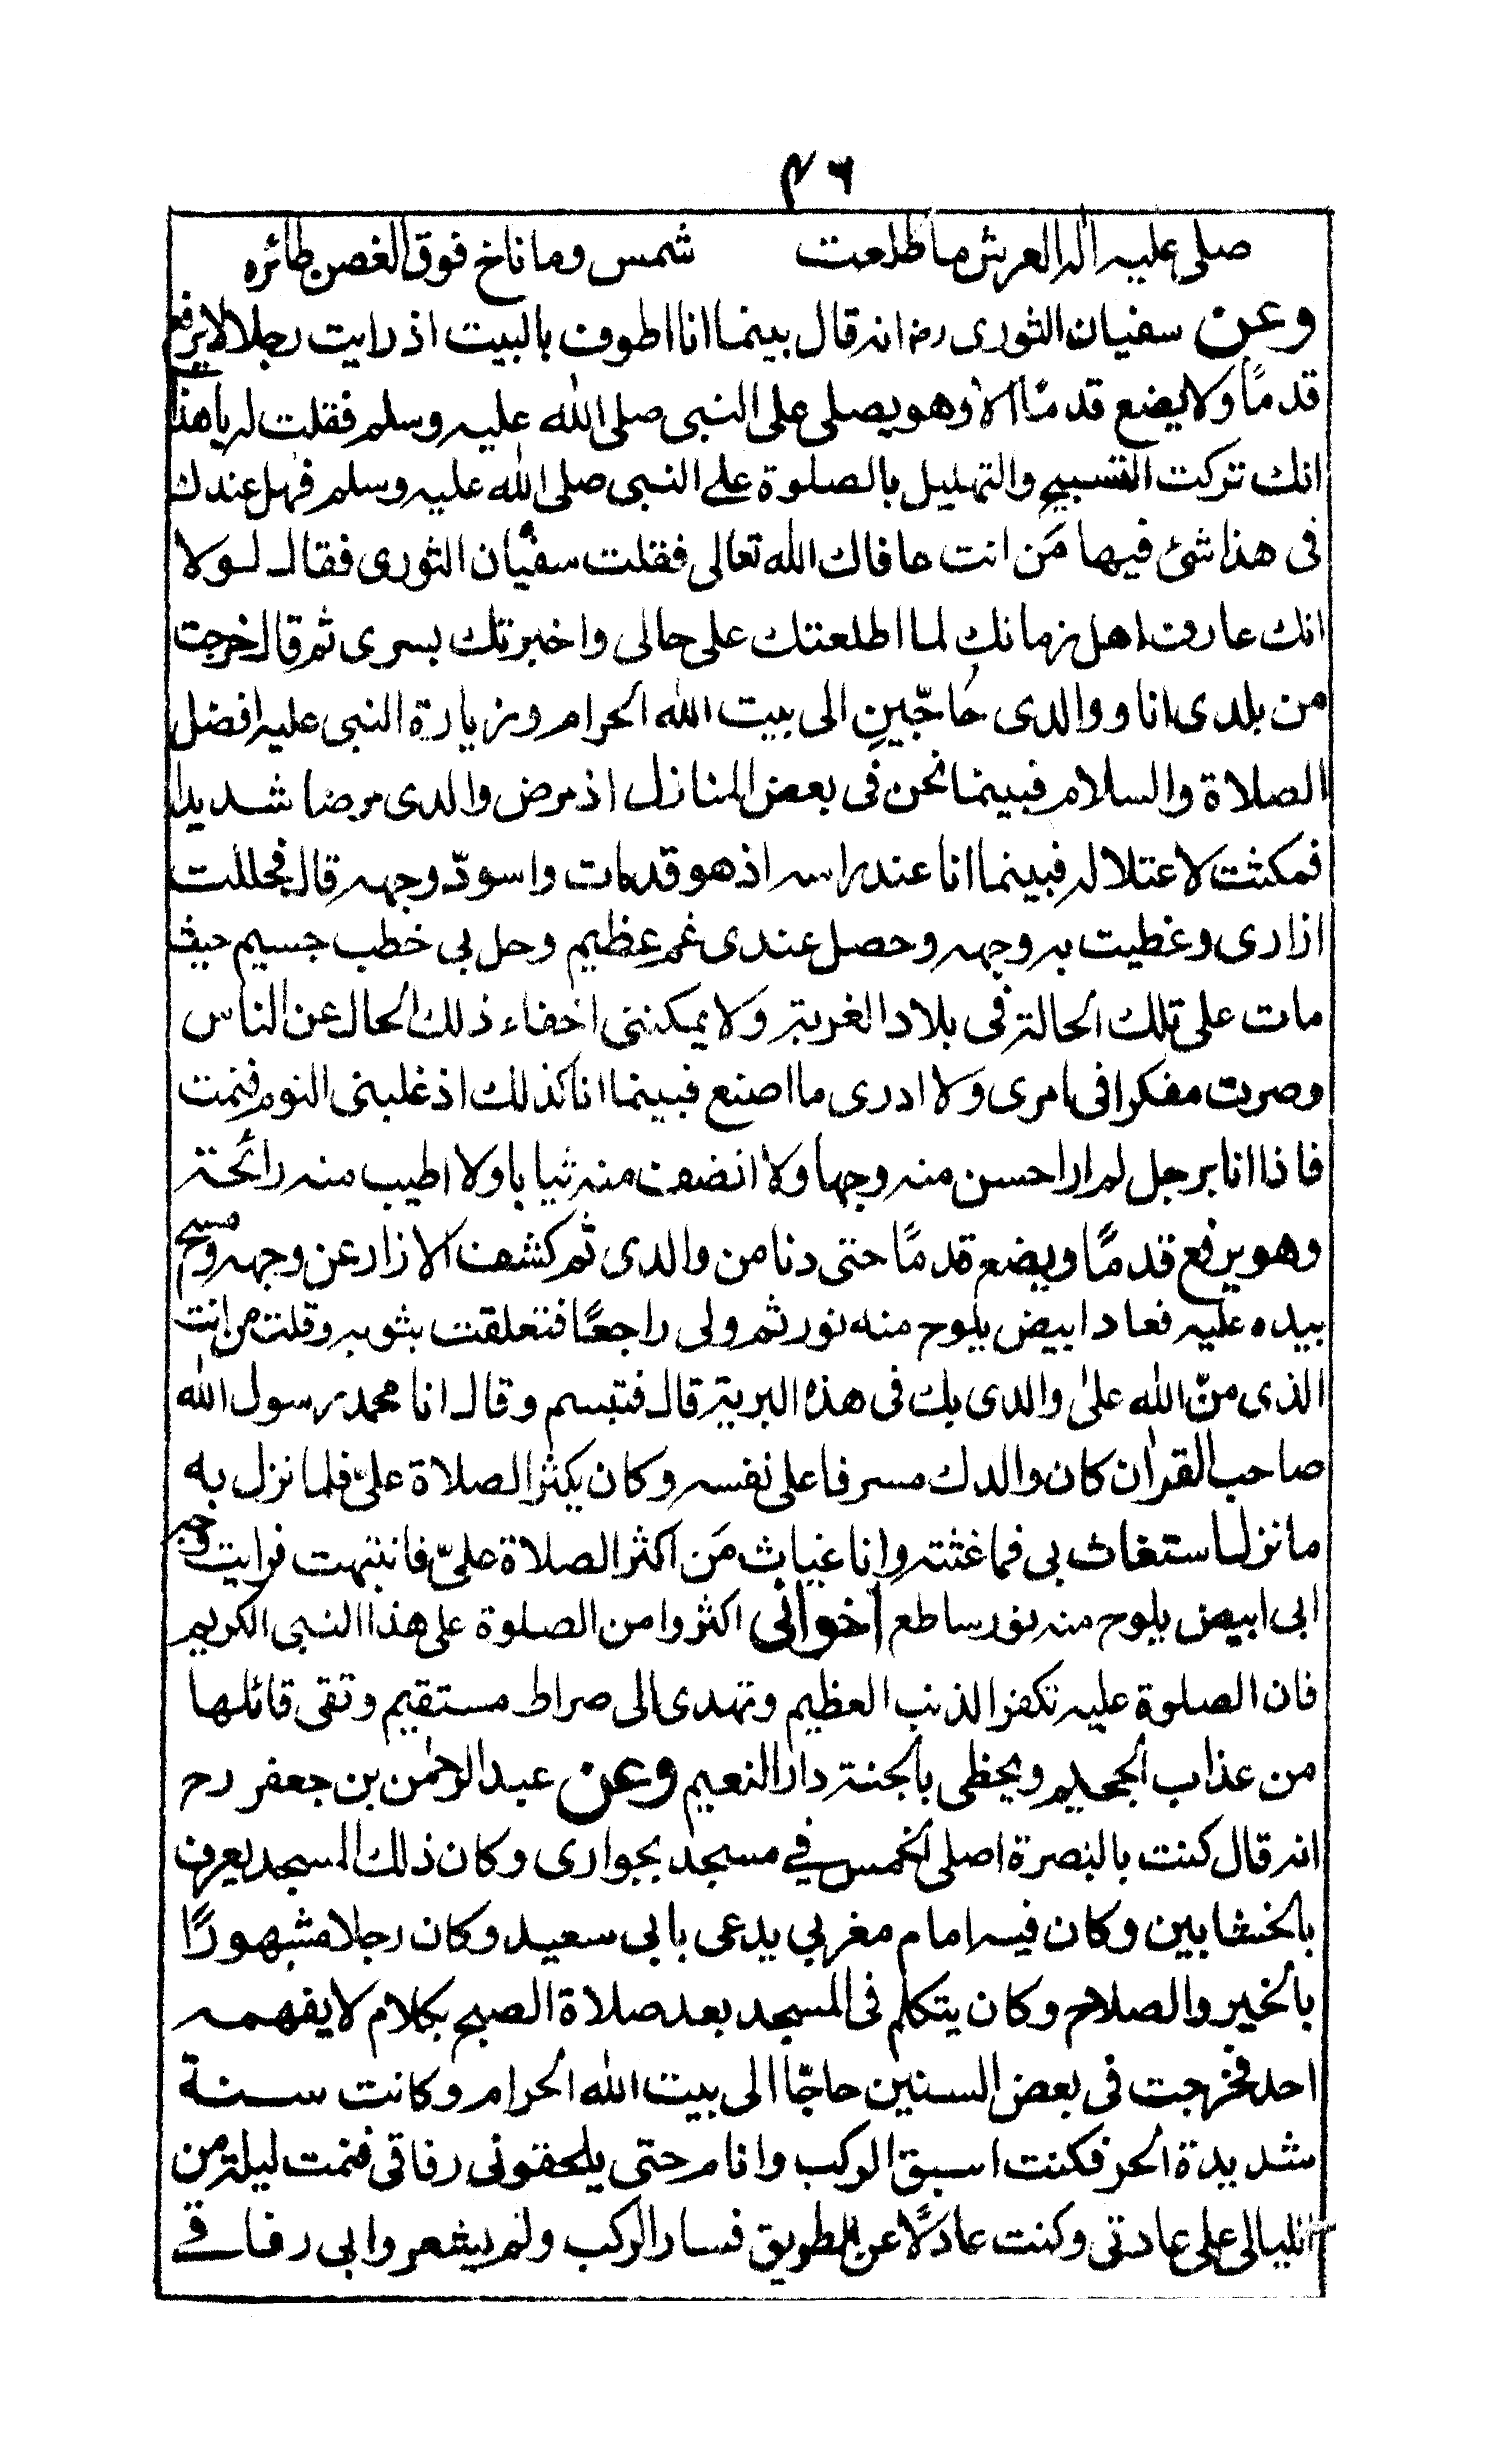 ٤٦
صلى عليه اله العرش ما طلعت شمس وما ناخ فوق الغصن طائره
وعن سفيان الثورى رض انه قال بينما انا اطوف بالبيت اذ رايت رجلا لا يرفع
قدمًا ولا يضع قدمًا الا وهو يصلى على النبى صلى الله عليه وسلم فقلت له يا هذا
انك تركت التسبيح والتهليل بالصلوة على النبى صلى الله عليه وسلم فهل عندك
فى هذا شئ فيها مَن انت عافاك الله تعالى فقلت سفيان الثورى فقال لولا
انك عارف اهل زمانك لما اطلعتك على حالى واخبرتك بسرى ثم قال خرجت
من بلدى انا ووالدى حاجّين الى بيت الله الحرام وزيارة النبى عليه افضل
الصلاة والسلام فبينما نحن فى بعض المنازل اذ مرض والدى مرضا شديدا
فمكثت لاعتلاله فبينما انا عند راسه اذ هو قد مات واسودّ وجهه قال فجللت
ازارى وغطيت به وجهه وحصل عندى غم عظيم وحل بى خطب جسيم حيث
مات على تلك الحالة فى بلاد الغربة ولا يمكننى اخفاء ذلك الحال عن الناس
وصرت مفكرا فى امرى ولا ادرى ما اصنع فبينما انا كذلك اذ غلبنى النوم فنمت
فاذا انا برجل لم ار احسن منه وجها ولا انضف منه ثيابا ولا اطيب منه رائحة
وهو يرفع قدمًا ويضع قدمًا حتى دنا من والدى ثم كشف الازار عن وجهه ومسح
بيده عليه فعاد ابيض يلوح منه نور ثم ولى راجعًا فتعلقت بثوبه وقلت من انت
الذى منّ الله على والدى بك فى هذه البرية قال فتبسم وقال انا محمد رسول الله
صاحب القران كان والدك مسرفا على نفسه وكان يكثر الصلاة علىّ فلما نزل به
ما نزل استغاث بى فاغثته وانا غياث مَن اكثر الصلاة علىّ فانتبهت فرايت وجه
ابى ابيض يلوح منه نور ساطع اخوانى اكثروا من الصلوة على هذا النبى الكريم
فان الصلوة عليه تكفر الذنب العظيم وتهدى الى صراط مستقيم وتقى قائلها
من عذاب الجحيم ويحظى بالجنة دار النعيم وعن عبد الرحمن بن جعفر رح
انه قال كنت بالبصرة اصلى الخمس فى مسجد بجوارى وكان ذلك المسجد يعرف
بالخشابين وكان فيه امام مغربى يدعى بابى سعيد وكان رجلا مشهورًا
بالخير والصلاح وكان يتكلم فى المسجد بعد صلاة الصبح بكلام لا يفهمه
احد فخرجت فى بعض السنين حاجّا الى بيت الله الحرام وكانت سنة
شديدة الحر فكنت اسبق الركب وانام حتى يلحقونى رفاقى فنمت ليلة من
الليالى على عادتى وكنت عادلًا عن الطريق فسار الركب ولم يشعروا بى رفاقى